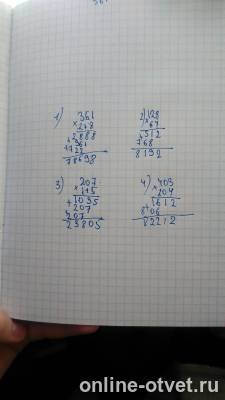 1) 361
× 218
2888
+ 361
722
78698
2) 128
× 64
+ 512
768
8192
3) 207
× 115
+ 1035
207
207
23805
4) 403
× 204
+ 1612
806
82212
online-otvet.ru